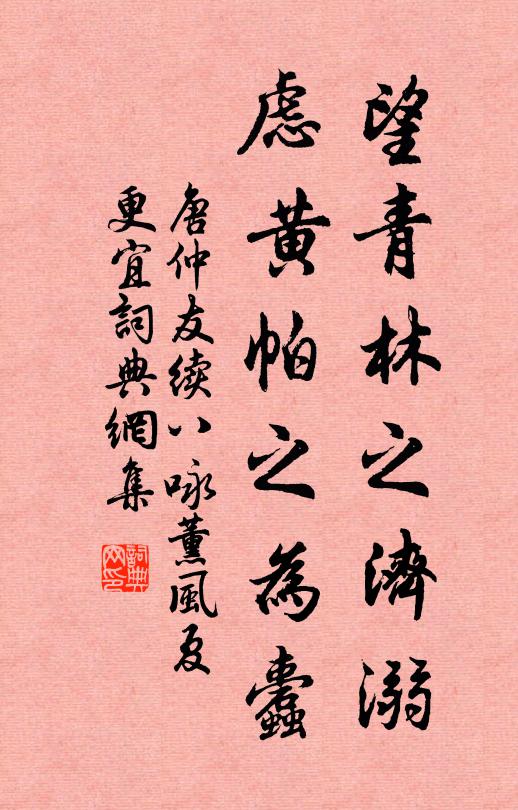 望青林之濟溺
慮黃帕之為蠹
唐仲友续八咏薰風夏
更宜詞典網集
詞典網印